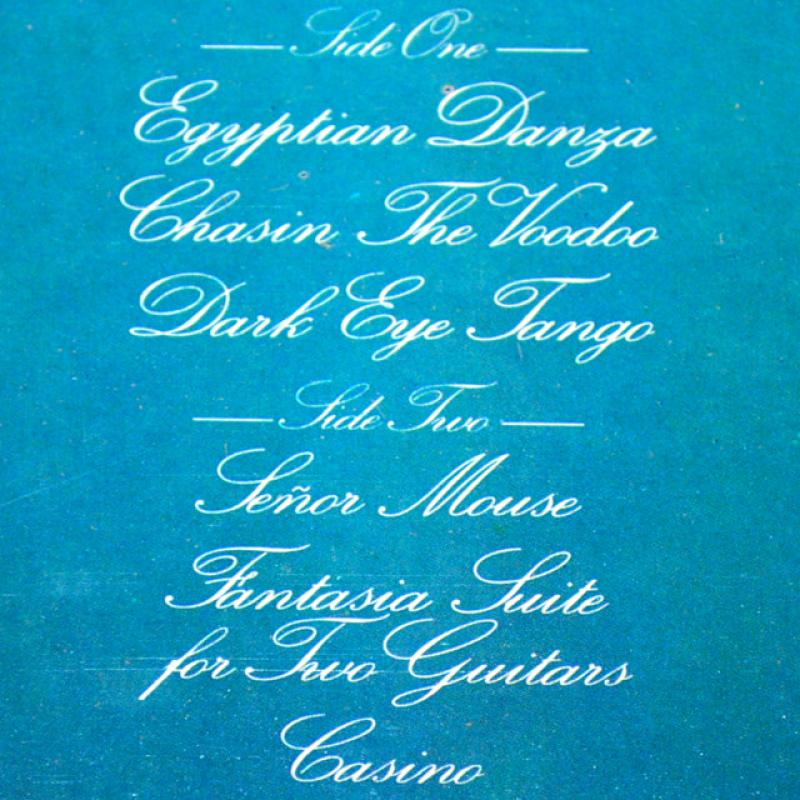 Side One
Egyptian Danza
Chasin The Voodoo
Dark Eye Tango
Side Two
Señor Mouse
Fantasia Suite
for Two Guitars
Casino